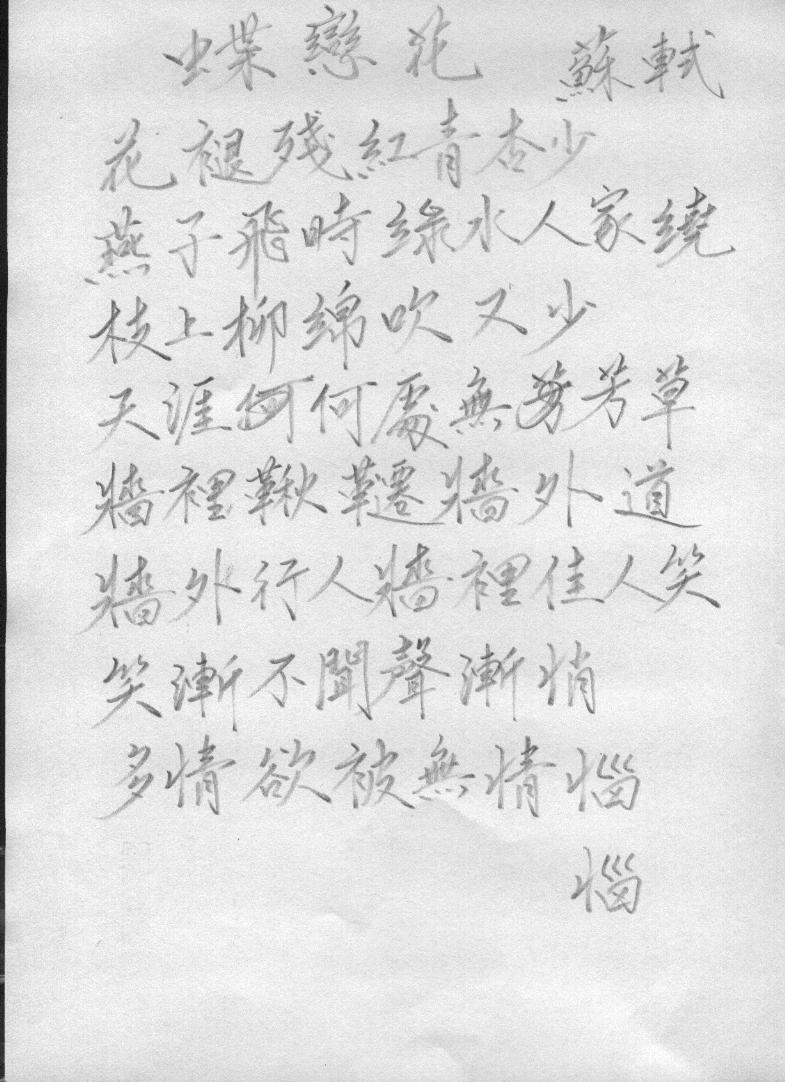 蝶戀花 蘇軾
花褪殘紅青杏少
燕子飛時綠水人家繞
枝上柳綿吹又少
天涯何處無芳草
牆裡鞦韆牆外道
牆外行人牆裡佳人笑
笑漸不聞聲漸悄
多情欲被無情惱
惱